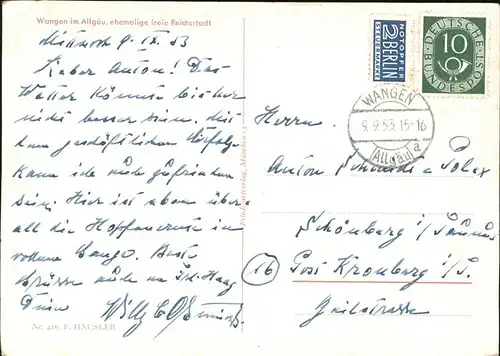 Wangen im Allgäu, ehemalige freie Reichsstadt
Mittwoch 9. IX. 53
Lieber Anton! Das
Wetter könnte bisher
nicht besser sein. Mit
dem geschäftlichen Erfolg
kann ich auch zufrieden
sein. Hier ist eben über-
all die Hopfenernte in
vollem Gange. Beste
Grüsse auch an
Dein Willy
Nr. 416. F. HÄUSLER
NOTOPFER
2 BERLIN
STEUERMARKE
DEUTSCHE BUNDESPOST
10
WANGEN
9.9.53.15-16
(Allgäu) a
Herrn
Anton
Schönberg i/Taunus
16
Post Kronberg i/T.